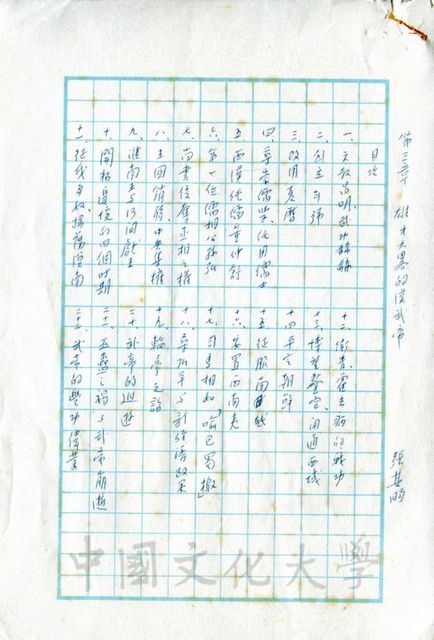 第三章 雄才大略的漢武帝
張其昀
目次
一、文教昌明武功赫赫
二、創立年號
三、改用夏曆
四、尊崇儒學、任用儒士
五、西漢純儒董仲舒
六、第一位儒相公孫弘
七、尚書侵奪丞相之權
八、王國削弱中央集權
九、淮南王與河間獻王
十、開拓邊境的四個時期
十一、征伐匈奴、掃蕩漠南
十二、衛青、霍去病的戰功
十三、博望鑿空、開通西域
十四、平定朝鮮
十五、征服南越
十六、安置西南夷
十七、司馬相如「喻巴蜀檄」
十八、桑弘羊與新經濟政策
十九、輪臺之詔
二十、武帝的巡遊
二十一、巫蠱之禍與武帝崩逝
二十二、武帝的豐功偉業
中國文化大學